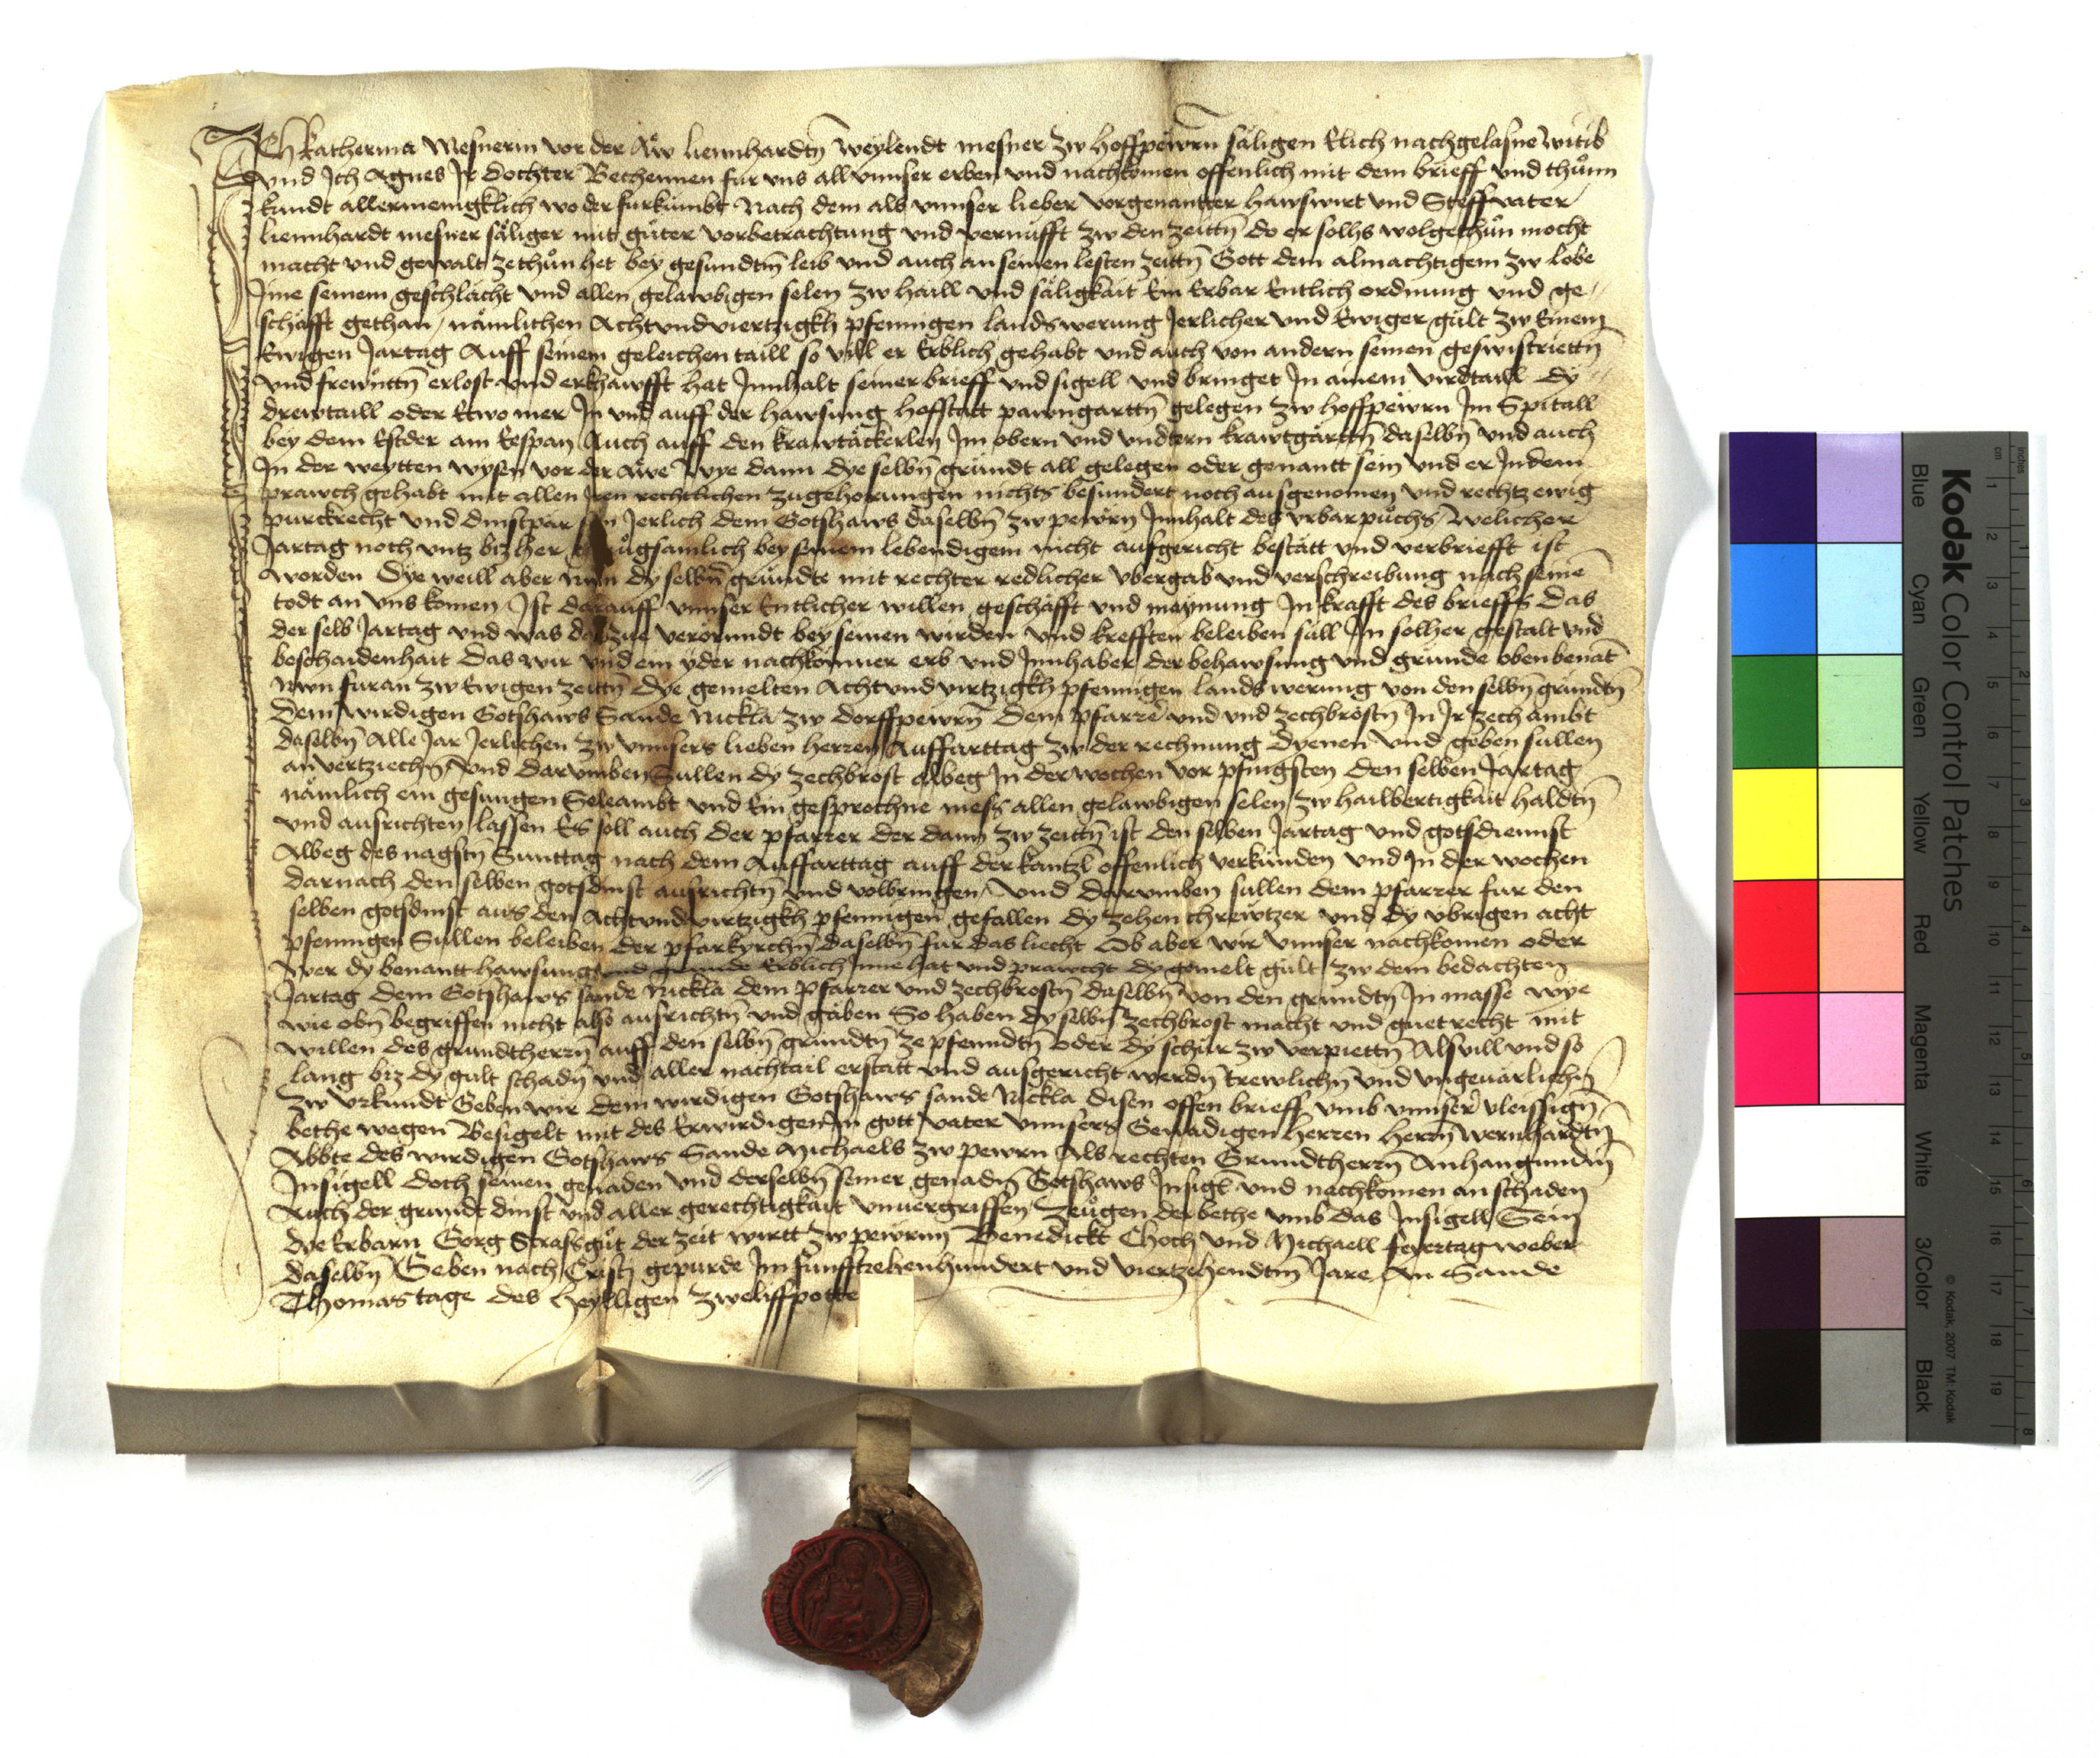 Ich Katherina Mesnerin vor der Aw liennhardtn̄ weylendt mesner zw hoffpewrn̄ såligen Elich nachgelasne witib
vnd Ich Agnes Ir dochter Bechennen fur vns all vnnser erben vnd nachkomen offenlich mit dem brieff vnd thůnn
kundt allermenigklich wo der furkumbt Nach dem als vnnser lieber vorgenantter hawswirt vnd Steffvater
liennhardt mesner såliger mit gůter vorbetrachtung vnd vernufft zw den zeittn̄ do er solhs wolgethůn mocht
macht vnd gewalt zethůn het bey gesundtm̄ leib vnd auch an seinen lesten zeittn̄ Gott dem almachtigem zw lobe
Ime seinem geschlåcht vnd allen gelawbigen selen zw haill vnd såligkait Ein Erbar Entlich ordnung vnd ge-
schåfft gethan / nåmlichen Achtvndviertzigkh pfenningen landswerung Ierlicher vnd Ewiger gůlt zw Einem
Ewigen Jartag Auff seinem geleichen taill so vill er Erblich gehabt vnd auch von andern seinen geswistriettn̄
vnd frewnttn̄ erlost vnd erkhawfft hat Innhalt seiner brieff vnd sigell vnd bringet In ainem virdtaill dy
drewtaill oder Etwo mer In vnd auff der hawsung hoffstatt pawngarttn̄ gelegen zw hoffpewrn Im Spitall
bey dem Estder am Eespan Auch auff den krawtåckerlen Im obern vnd vndtern krawtgårttn̄ daselbn̄ vnd auch
In der weytten wysn̄ vor der Awe Wye dann dye selbn̄ grůndt all gelegen oder genantt sein vnd er Indem
prawch gehabt mit allen Iren rechtlichen zugehorungen nichts besundert noch ausgenomen vnd rechtz ewig
purckrecht vnd dinstpar sein Ierlich dem Gotshaws daselbn̄ zw pewrn Innhalt des vrbarpůchs / Welicher
Jartag noch vntz bizher genůgsamlich bey seinem lebendigem nicht aufgericht bestått vnd verbriefft ist
worden Dye weill aber nun dy selbn̄ grůndte mit rechter redlicher vbergab vnd verschreibung nach seine̅
todt an vns komen Ist darauff vnnser Entlicher willen geschåfft vnd maynung In krafft des brieffs Das
der selb Jartag vnd was darzue verordnndt bey seinen wirden vnd krefften beleiben sull In solher gestalt vnd
beschaidenhait Das wir vnd ein yder nachkomner erb vnd Innhaber der behawsung vnd grunde obenbenåt
nwn furan zw Ewigen zeittn̄ dye gemelten Achtvndvirtzigkh pfenningen lands werung von den selbn̄ grundtn̄
dem wirdigen Gotshaws Sande Nickla zw dorffpewrn̄ dem pfarrer vnd vnd zechbrostn̄ In Ir zech ambt
daselbn̄ Alle Jar Ierlichen zw vnnsers lieben herren Auffarttag zw der rechnung dyenen vnd geben sullen
an vertziechn̄ Vnd darvmben Sullen dy zechbrost albeg In der wochen vor pfingsten den selben Jartag
nåmlich ein gesungen Seleambt vnd Ein gesprochne mess allen gelawbigen selen zw hailbertigkait haldtn̄
vnd ausrichten lassen Es soll auch der pfarrer der dann zw zeittn̄ ist den selben Jartag vnd gotsdiennst
Albeg des nagstn̄ Sunttag nach dem Auffarttag auff der kantzl offenlich verkůnden vnd In der wochen
darnach den selben gotsdinst ausrichtn̄ vnd volbringen Vnd darvmben sullen dem pfarrer fur den
selben gotsdinst aus den Achtvndvirtzigkh pfenningen gefallen dy zehen chrewtzer vnd dy vbrigen acht
pfenningen Sullen beleiben der pfarkyrchn̄ daselbn̄ fur das liecht Ob aber wir vnnser nachkomen oder
Wer dy benantt hawsung vnd grunde Erblich Inne hat vnd prawcht dy gemelt gůlt zw dem bedachten
Jartag dem Gotshaws sande Nickla dem pfarrer vnd zechbrostn̄ daselbn̄ von den grundtn̄ In masse wye
wie obn̄ begriffen nicht also ausrichtn̄ vnd gåben So haben dy selbn̄ zechbrost macht vnd guet recht mit
willen des grundtherrn̄ auff den selbn̄ grundtn̄ ze pfenndtn̄ oder dy schůr zw verpiettn̄ Als vill vnd so
lang biz dy gult schadn̄ vnd aller nachtail erstatt vnd ausgericht werdn̄ trewlichn̄ vnd vngeuårlichn̄
zw vrkundt Geben wir dem wirdigen Gotshaws sande Nickla disen offen brieff vmb vnnser vleissign̄
bethe wegen Besigelt mit des Erwirdigen In gott vater vnnsers Genadigen herren herrn̄ Wernhardtn̄
Abbte des wirdigen Gotshaws Sande Michaels zw pewrn Als rechten Grundtherrn̄ Anhangundm̄
Insigell doch seinen genaden vnd derselbn̄ seiner genadn̄ Gotshaws Insigl vnd nachkomen an schaden
Auch der grundt dinst vnd aller gerechtigkait vnuergriffen Zeůgen der bethe vmb das Insigell Sein
dye Erbarn Gorg Strasseguͦt der zeit wirtt zw pewrnn Benedickt Choch vnd Michaell feyertag weber
daselbn̄ Geben nach Cristj gepurde Im funfftzehenhundert vnd viertzehendtm̄ Jare An Sande
Thomas tage des heylligen zweliffpotte
Kodak Color Control Patches
© Kodak, 2007 TM: Kodak
Blue Cyan Green Yellow Red Magenta White 3/Color Black
cm 1 2 3 4 5 6 7 8 9 10 11 12 13 14 15 16 17 18 19
inches 1 2 3 4 5 6 7 8